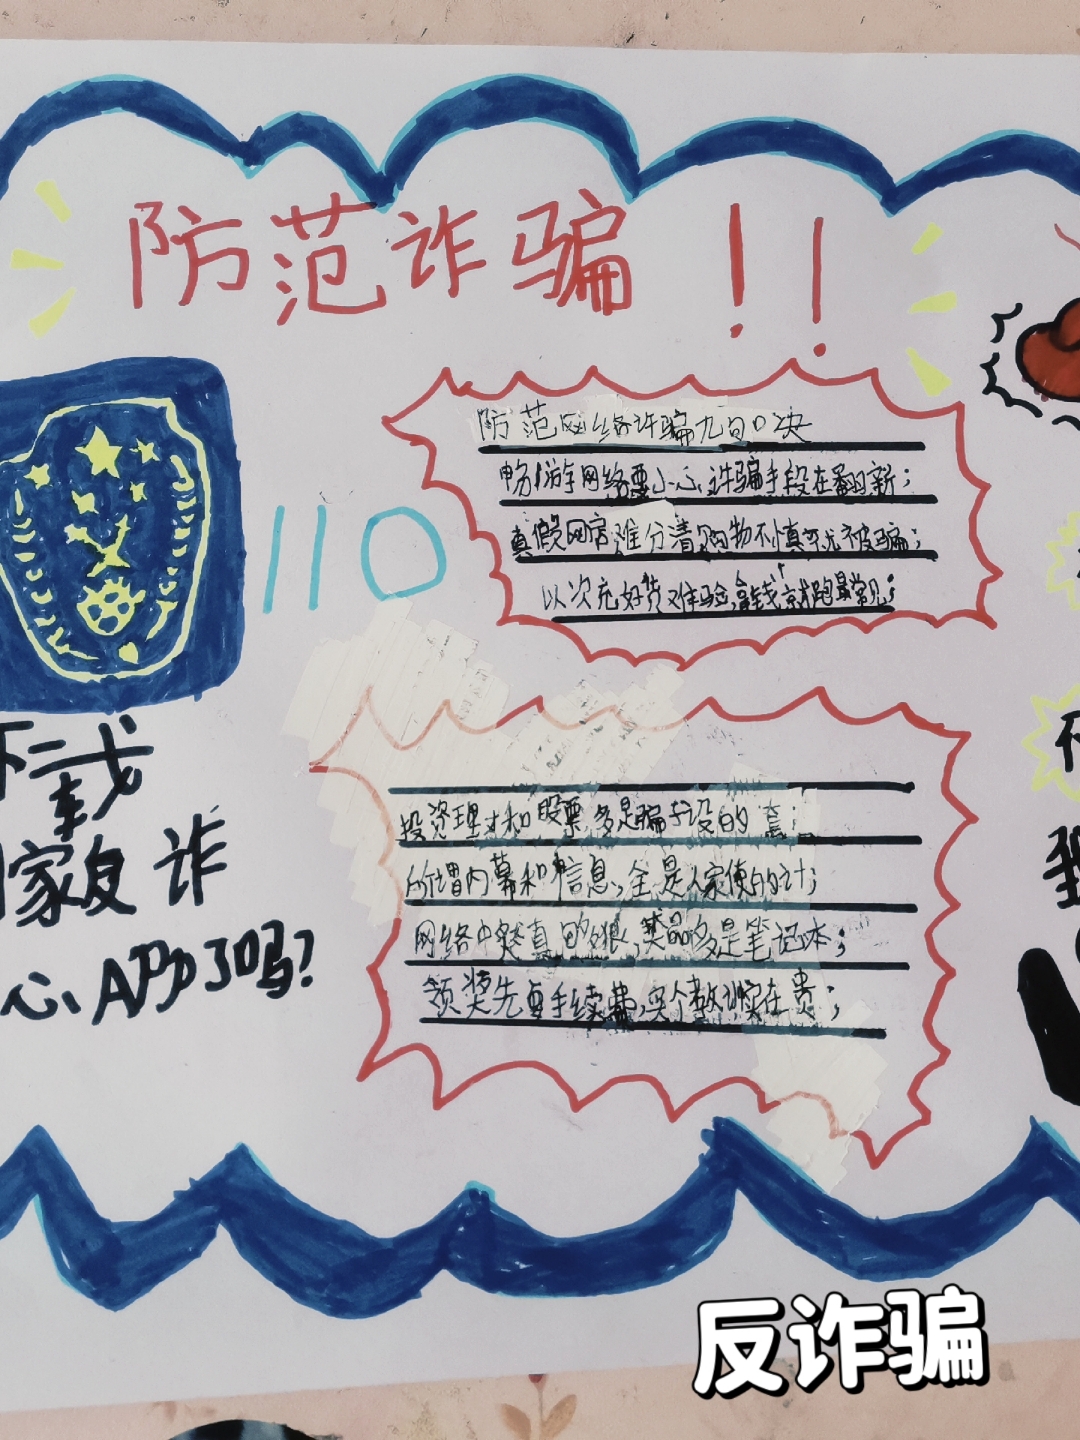 防范诈骗!!
110
防范网络诈骗九句口决
畅游网络要小心,诈骗手段在翻新;
真假网店难分清,购物不慎就被骗;
以次充好货难验,拿钱就跑最常见;
投资理财和股票,多是骗子设的套;
所谓内幕和信息,全是人家使的计;
网络中奖真的狠,奖品多是笔记本;
领奖先点手续费,买个教训实在贵;
下载
国家反诈
心APP了吗?
反诈骗